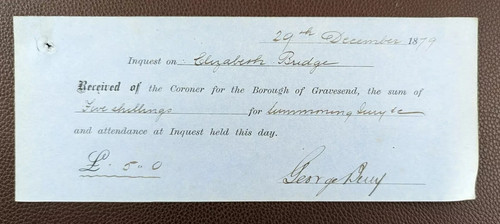 29th December 1879
Inquest on Elizabeth Bridge
Received of the Coroner for the Borough of Gravesend, the sum of
Five shillings for summoning Jury &c
and attendance at Inquest held this day.
£. 5-0
George